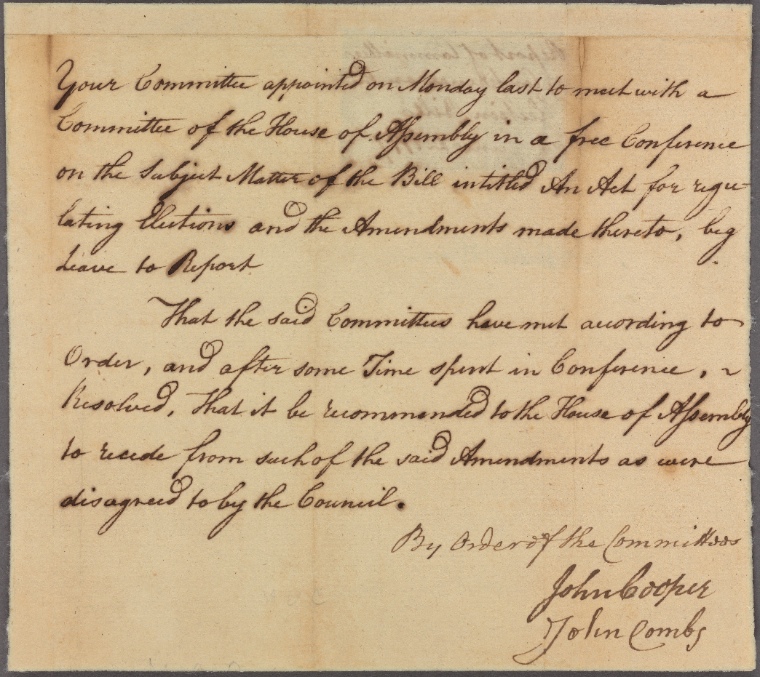 Your Committee appointed on Monday last to meet with a
Committee of the House of Assembly in a free Conference
on the Subject Matter of the Bill intitled An Act for regu-
lating Elections and the Amendments made thereto, beg
Leave to Report
That the said Committees have met according to
Order, and after some Time spent in Conference, ~
Resolved, That it be recommended to the House of Assembly
to recede from such of the said Amendments as were
disagreed to by the Council.
By Order of the Committees
John Cooper
John Combs